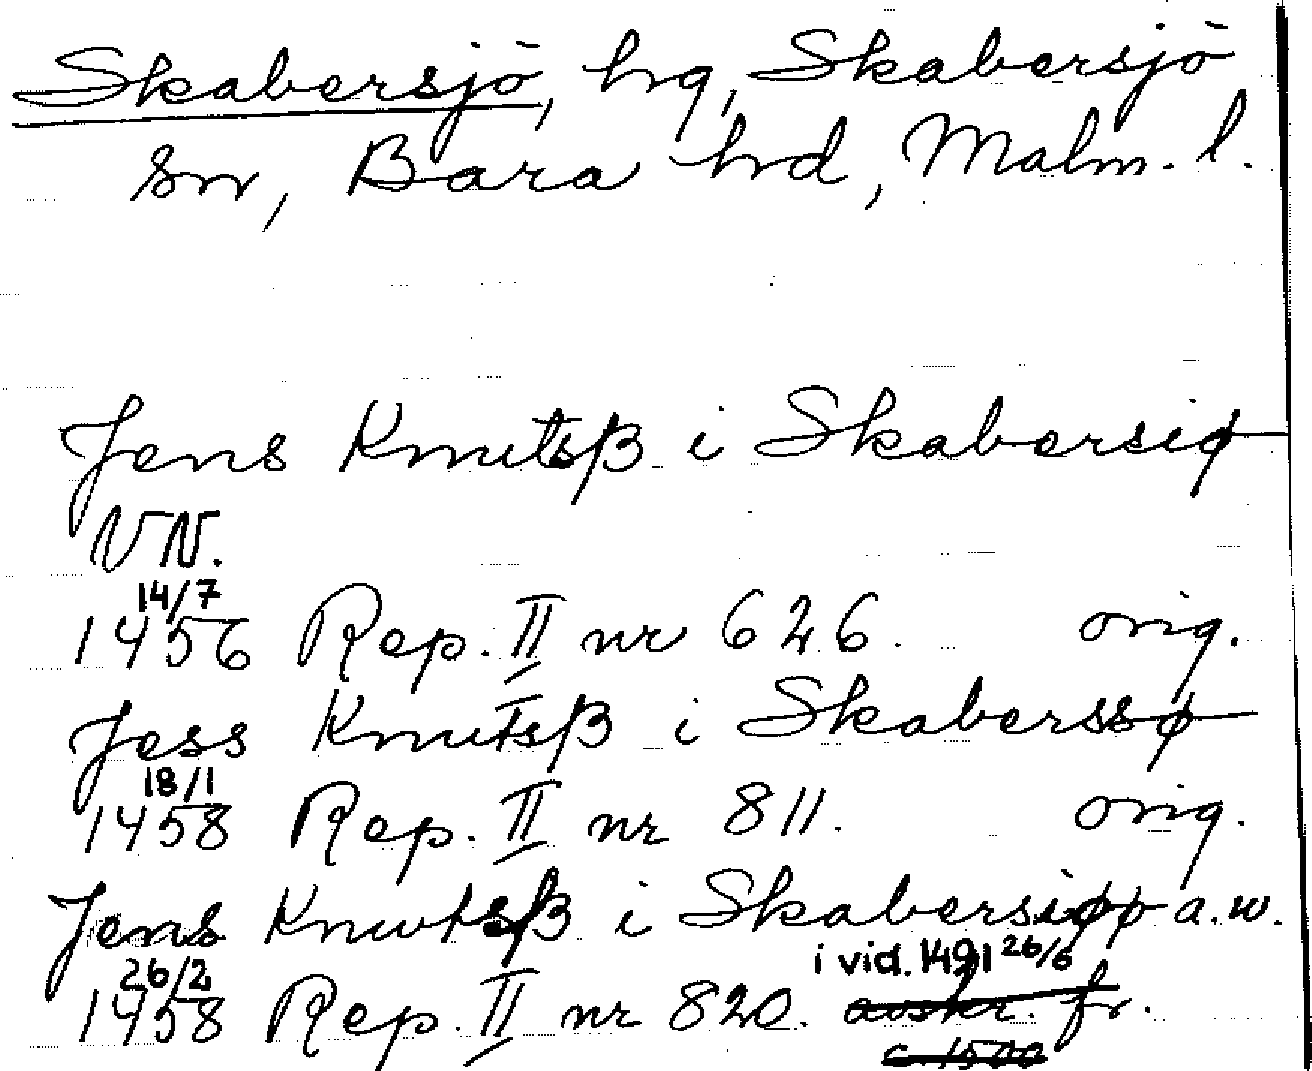 Skabersjö, hg, Skabersjö
sn, Bara hd, Malm. l.
Jens Knutsß i Skabersiø
VN.
14/7
1456 Rep. II nr 626. orig.
Jess Knutsß i Skaberssø
18/1
1458 Rep. II nr 811. orig.
Jens Knwtsß i Skabersiøø a.w.
26/2 i vid. 1491 26/6
1458 Rep. II nr 820. avskr. fr.
c. 1500